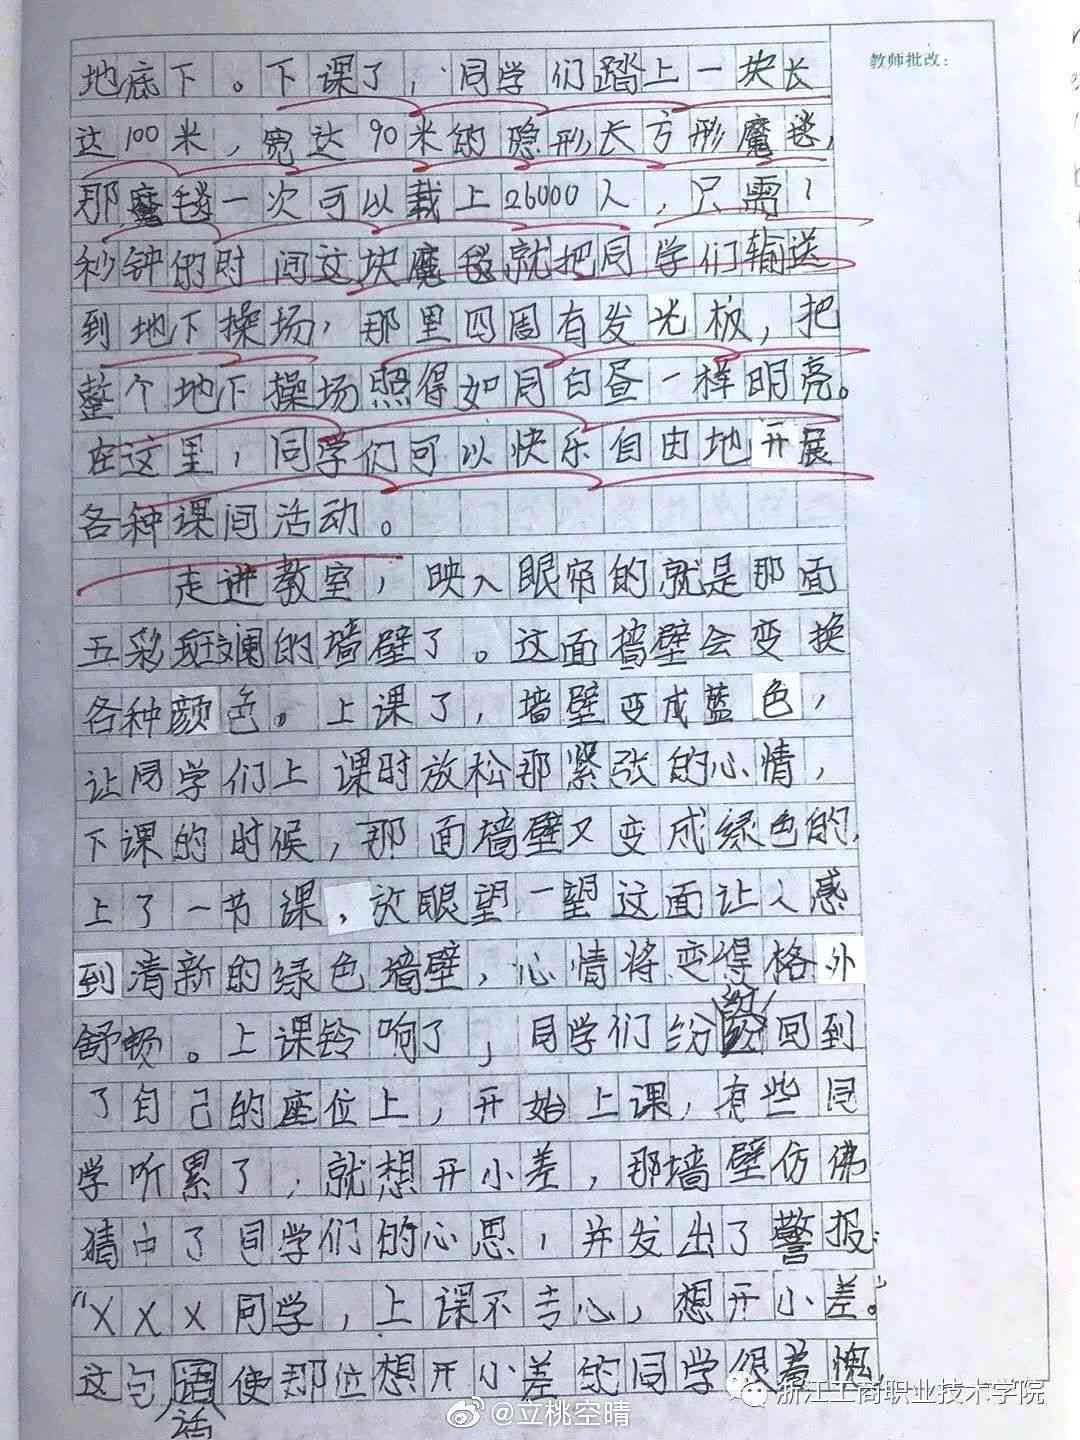 教师批改：
地底下。下课了，同学们踏上一块长
达100米，宽达90米的隐形长方形魔毯，
那魔毯一次可以载上26000人，只需1
秒钟的时间这块魔毯就把同学们输送
到地下操场，那里四周有发光板，把
整个地下操场照得如同白昼一样明亮。
在这里，同学们可以快乐自由地开展
各种课间活动。
走进教室，映入眼帘的就是那面
五彩斑斓的墙壁了。这面墙壁会变换
各种颜色。上课了，墙壁变成蓝色，
让同学们上课时放松那紧张的心情，
下课的时候，那面墙壁又变成绿色的，
上了一节课，放眼望一望这面让人感
到清新的绿色墙壁，心情将变得格外
舒畅。上课铃响了，同学们纷纷回到
了自己的座位上，开始上课，有些同
学听累了，就想开小差，那墙壁仿佛
猜中了同学们的心思，并发出了警报：
“XXX同学，上课不专心，想开小差。”
这句话使那位想开小差的同学很羞愧
浙江工商职业技术学院
@立桃空晴